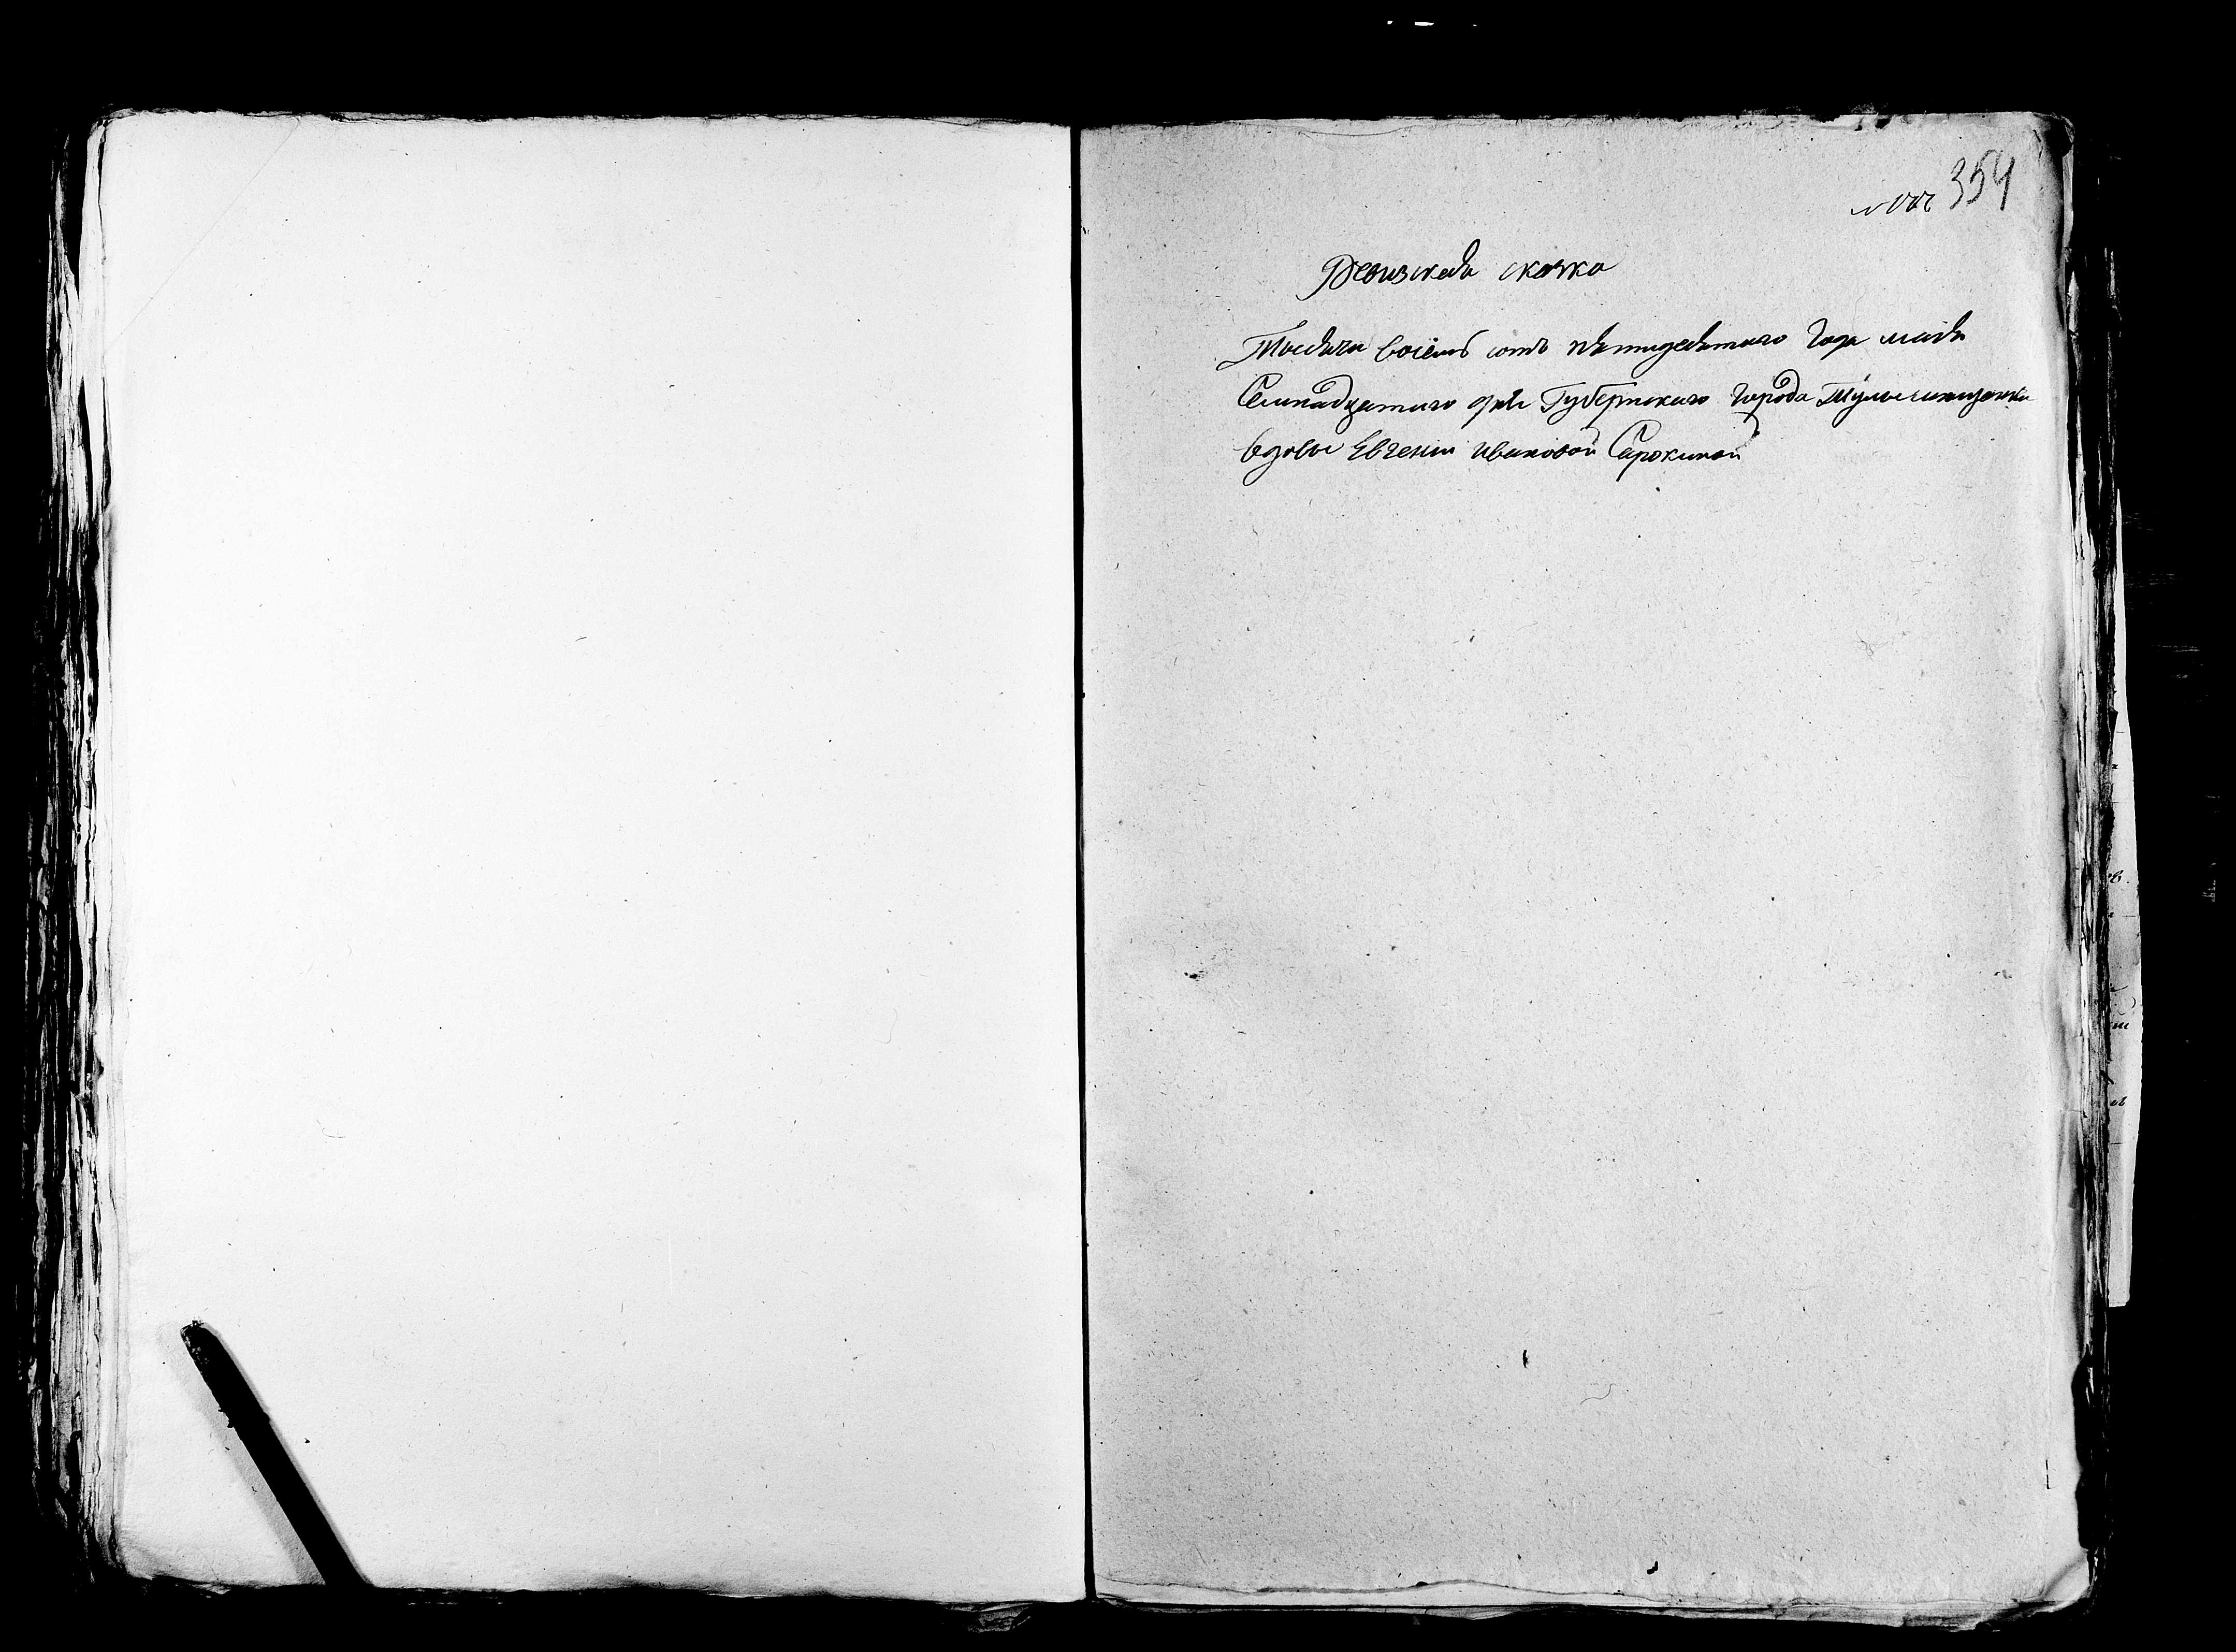 354
Ревизская скаска
Тысяча восемь сотъ пятидесятаго Года маія
Семнадцатаго дня Губернскаго Города Тулы
вдовы Евгении Ивановой Сарокиной